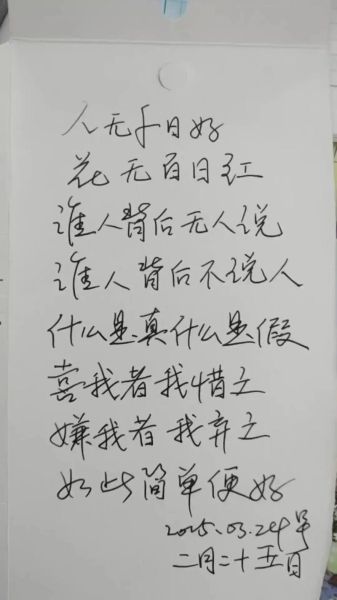 人无千日好
花无百日红
谁人背后无人说
谁人背后不说人
什么是真什么是假
喜我者我惜之
嫌我者我弃之
如此简单便好
2025.03.24号
二月二十五日